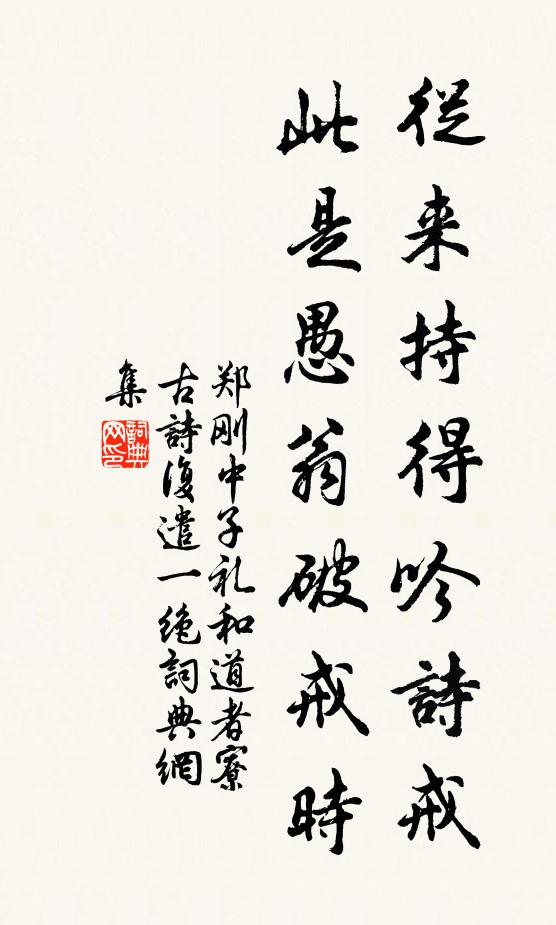 從来持得吟詩戒
此是愚翁破戒時
郑刚中子礼和道者寮
古詩復遣一绝詞典網
集
詞典网印